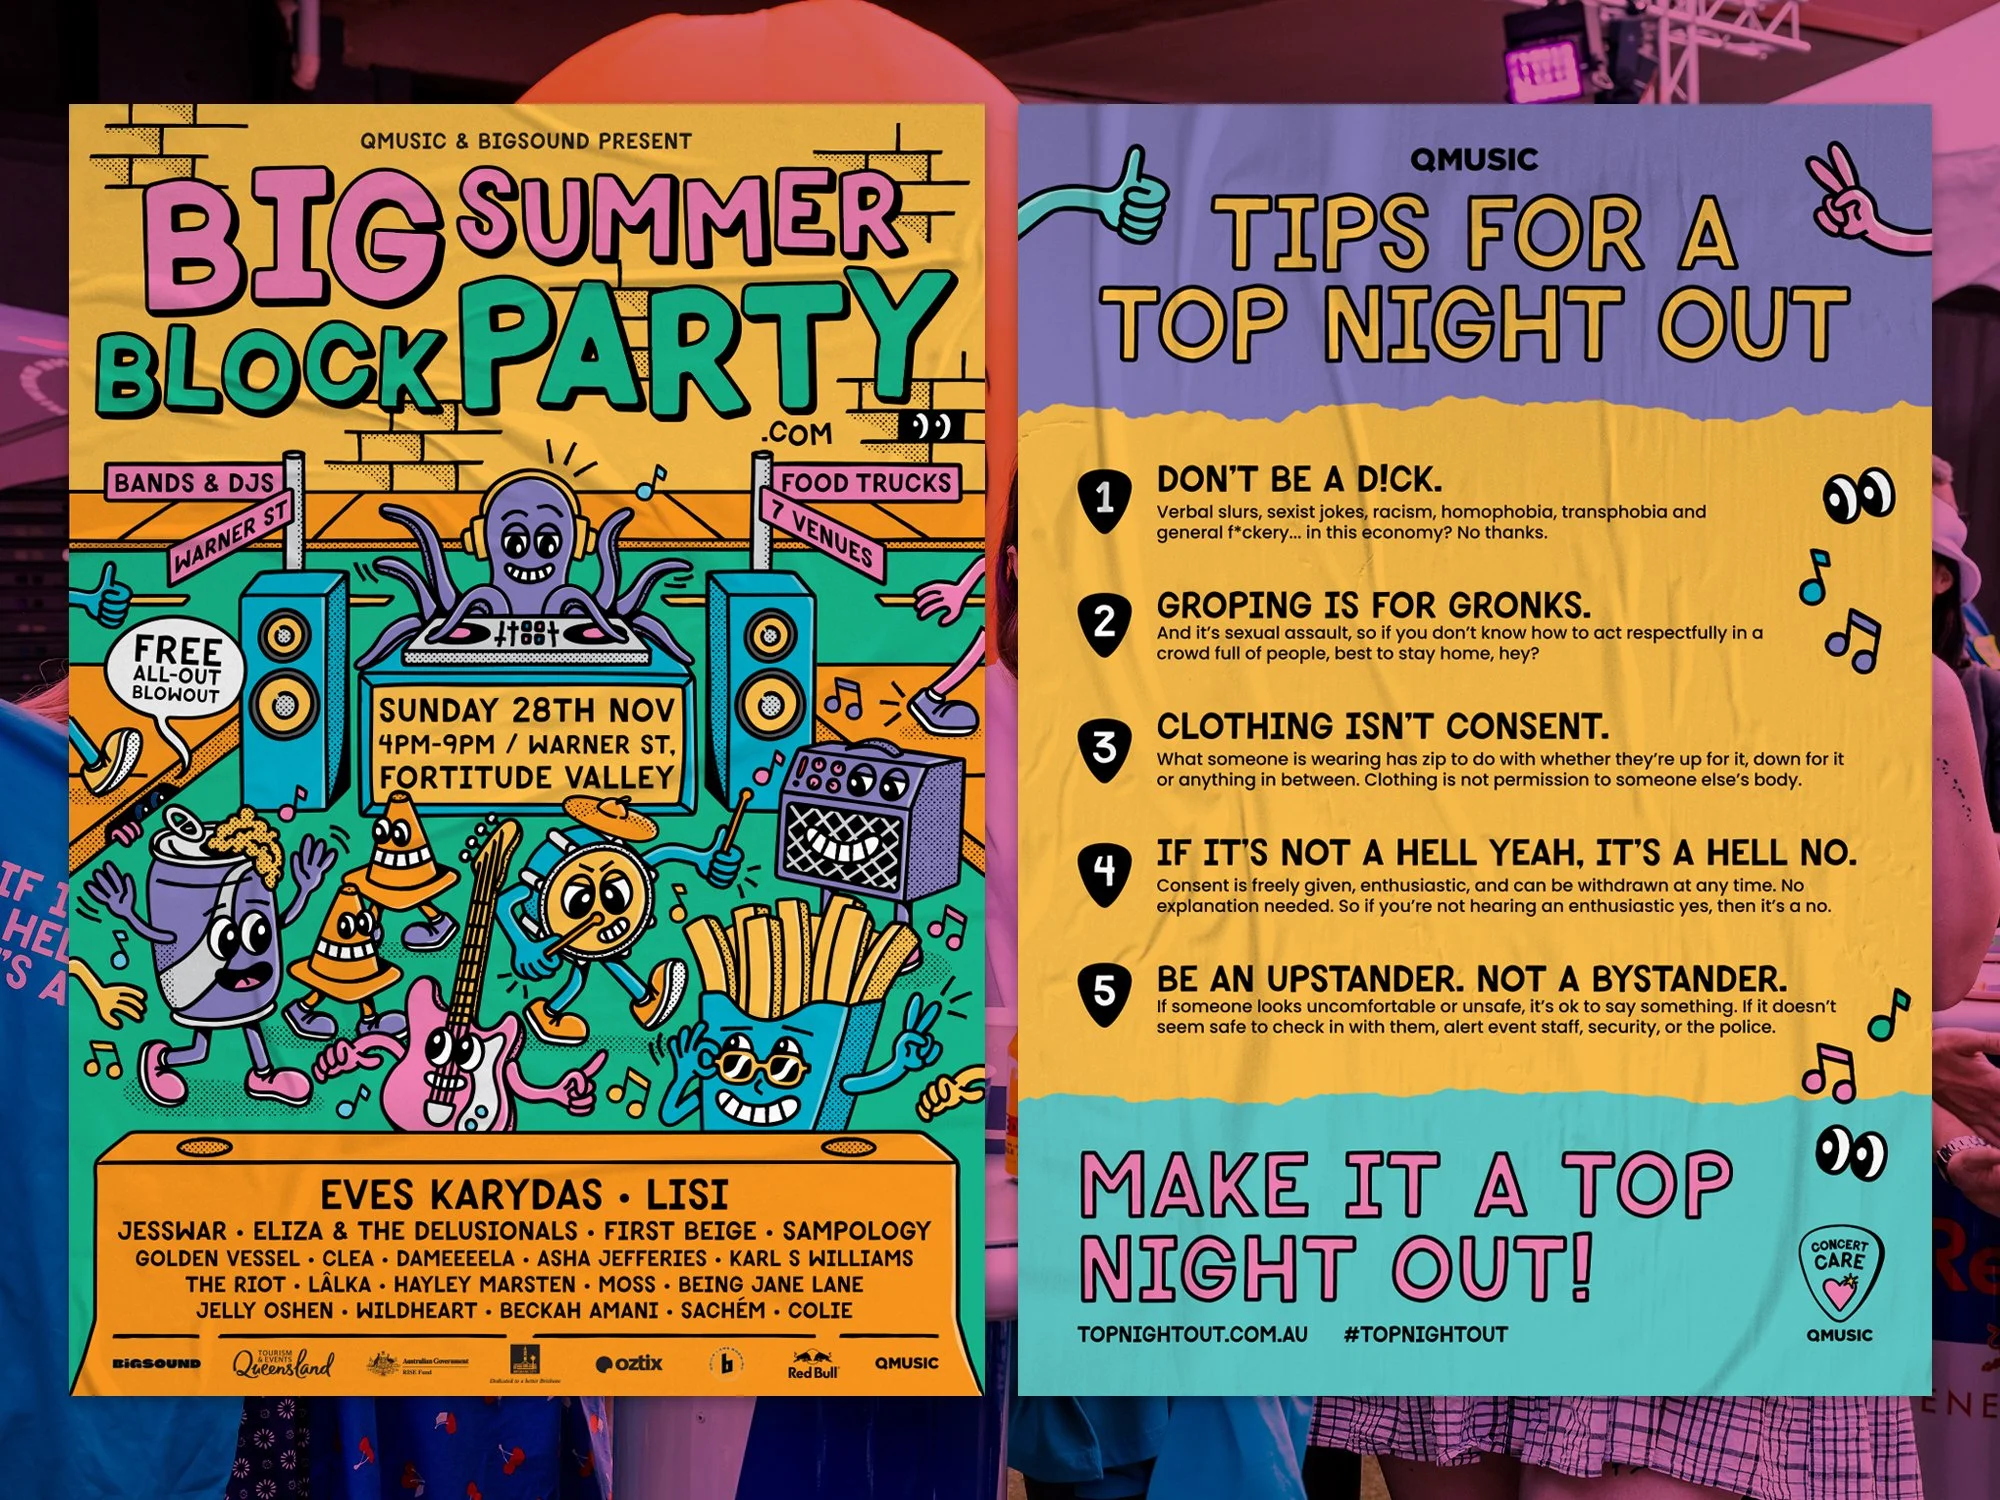 QMUSIC & BIGSOUND PRESENT
BIG SUMMER
BLOCK PARTY
.COM
BANDS & DJS
WARNER ST
FOOD TRUCKS
7 VENUES
FREE
ALL-OUT
BLOWOUT
SUNDAY 28TH NOV
4PM-9PM / WARNER ST,
FORTITUDE VALLEY
EVES KARYDAS • LISI
JESSWAR • ELIZA & THE DELUSIONALS • FIRST BEIGE • SAMPOLOGY
GOLDEN VESSEL • CLEA • DAMEEEELA • ASHA JEFFERIES • KARL S WILLIAMS
THE RIOT • LÂLKA • HAYLEY MARSTEN • MOSS • BEING JANE LANE
JELLY OSHEN • WILDHEART • BECKAH AMANI • SACHÉM • COLIE
BIGSOUND
TOURISM
& EVENTS
Queensland
Australian Government
RISE Fund
Dedicated to a better Brisbane
oztix
b
Red Bull
QMUSIC
QMUSIC
TIPS FOR A
TOP NIGHT OUT
1
DON'T BE A D!CK.
Verbal slurs, sexist jokes, racism, homophobia, transphobia and
general f*ckery... in this economy? No thanks.
2
GROPING IS FOR GRONKS.
And it's sexual assault, so if you don't know how to act respectfully in a
crowd full of people, best to stay home, hey?
3
CLOTHING ISN'T CONSENT.
What someone is wearing has zip to do with whether they're up for it, down for it
or anything in between. Clothing is not permission to someone else's body.
4
IF IT'S NOT A HELL YEAH, IT'S A HELL NO.
Consent is freely given, enthusiastic, and can be withdrawn at any time. No
explanation needed. So if you're not hearing an enthusiastic yes, then it's a no.
5
BE AN UPSTANDER. NOT A BYSTANDER.
If someone looks uncomfortable or unsafe, it's ok to say something. If it doesn't
seem safe to check in with them, alert event staff, security, or the police.
MAKE IT A TOP
NIGHT OUT!
TOPNIGHTOUT.COM.AU #TOPNIGHTOUT
CONCERT
CARE
QMUSIC
IF I
HEL
'S A
Re
ENE